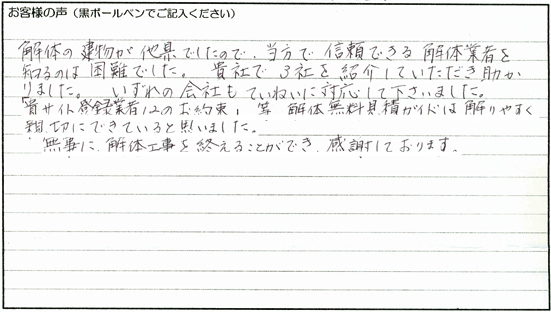 お客様の声（黒ボールペンでご記入ください）
解体の建物が他県でしたので、当方で信頼できる解体業者を
知るのは困難でした。 貴社で3社を紹介していただき助か
りました。 いずれの会社もていねいに対応して下さいました。
「貴サイト登録業者12のお約束」等 解体無料見積ガイドは解りやすく
親切にできていると思いました。
無事に、解体工事を終えることができ、感謝しております。